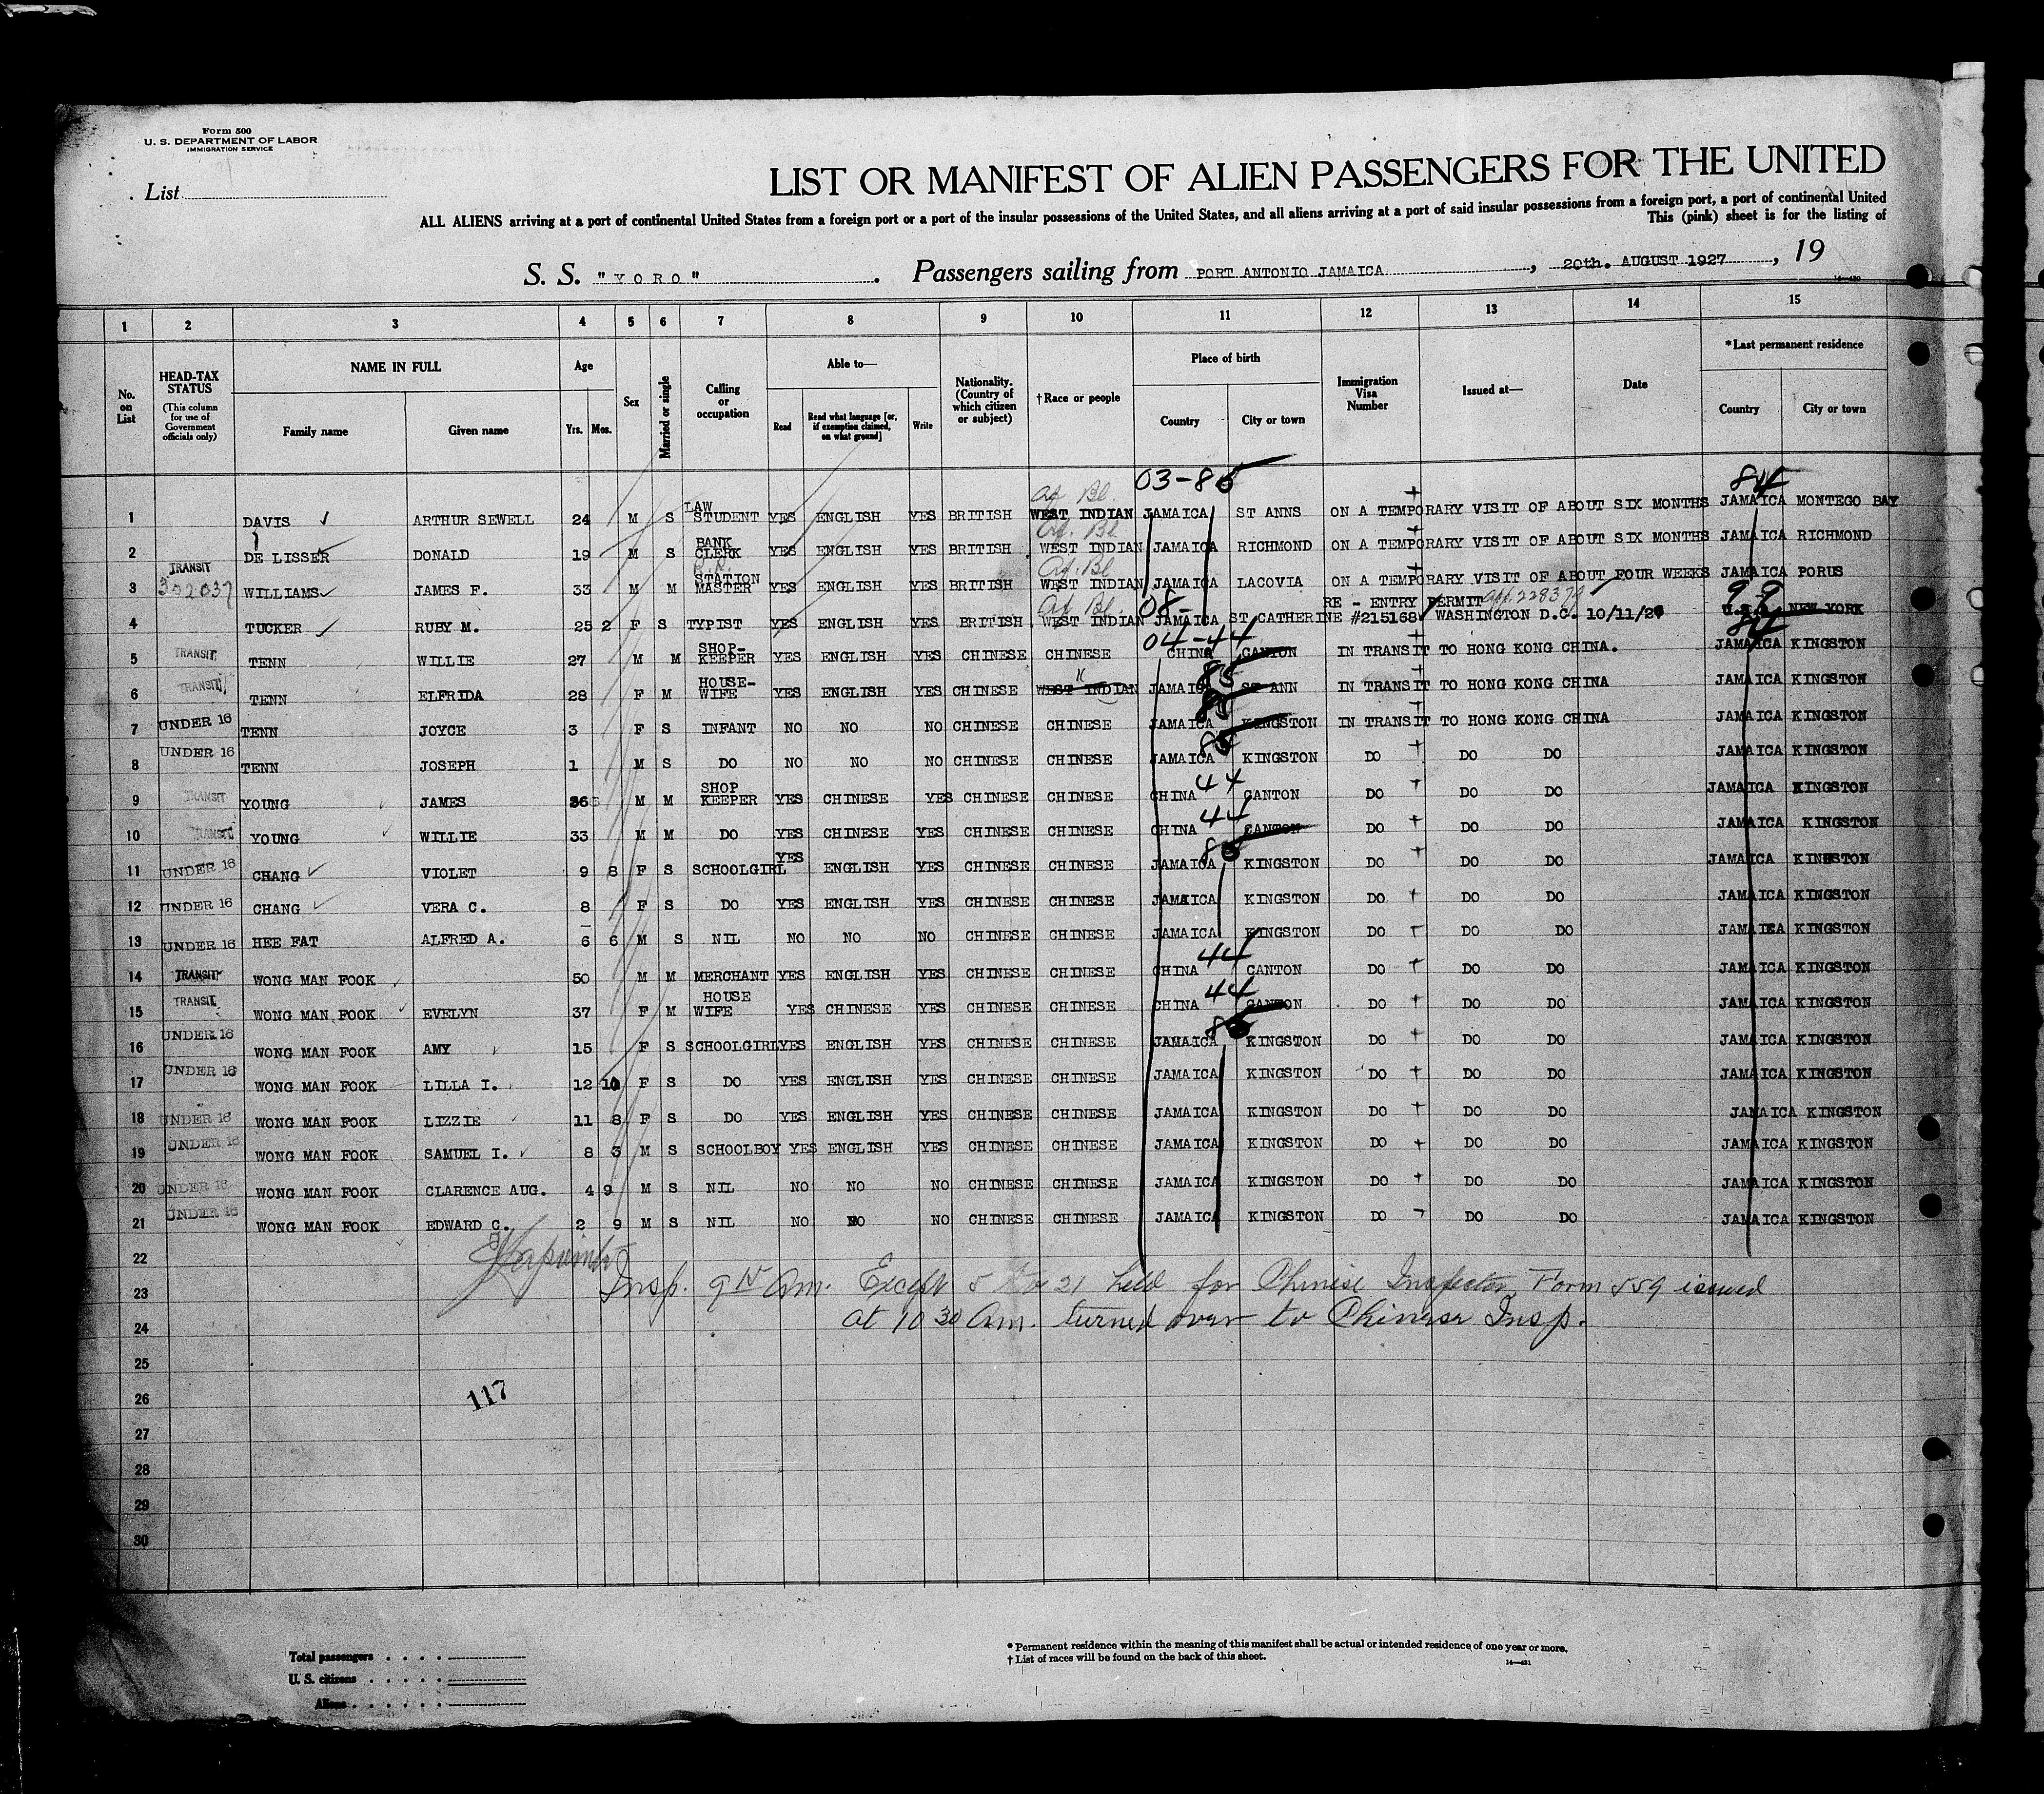 Form 500
U. S. DEPARTMENT OF LABOR
IMMIGRATION SERVICE
List
LIST OR MANIFEST OF ALIEN PASSENGERS FOR THE UNITED
ALL ALIENS arriving at a port of continental United States from a foreign port or a port of the insular possessions of the United States, and all aliens arriving at a port of said insular possessions from a foreign port, a port of continental United
This (pink) sheet is for the listing of
S. S. "YORO". Passengers sailing from PORT ANTONIO JAMAICA, 20th. AUGUST 1927, 19
14—430
1 2 3 4 5 6 7 8 9 10 11 12 13 14 15
No. on List
HEAD-TAX STATUS (This column for use of Government officials only)
NAME IN FULL
Family name Given name
Age Yrs. Mos.
Sex
Married or single
Calling or occupation
Able to— Read Read what language [or, if exemption claimed, on what ground] Write
Nationality. (Country of which citizen or subject)
† Race or people
Place of birth Country City or town
Immigration Visa Number
Issued at—
Date
* Last permanent residence Country City or town
03-85 84
Af. Bl.
1 DAVIS ARTHUR SEWELL 24 M S LAW STUDENT YES ENGLISH YES BRITISH WEST INDIAN JAMAICA ST ANNS ON A TEMPORARY VISIT OF ABOUT SIX MONTHS JAMAICA MONTEGO BAY
Af. Bl.
2 DE LISSER DONALD 19 M S BANK CLERK YES ENGLISH YES BRITISH WEST INDIAN JAMAICA RICHMOND ON A TEMPORARY VISIT OF ABOUT SIX MONTHS JAMAICA RICHMOND
Af. Bl.
3 TRANSIT 302037 WILLIAMS JAMES F. 33 M M R.R. STATION MASTER YES ENGLISH YES BRITISH WEST INDIAN JAMAICA LACOVIA ON A TEMPORARY VISIT OF ABOUT FOUR WEEKS JAMAICA PORUS
Af. Bl. 08- 99
4 TUCKER RUBY M. 25 2 F S TYPIST YES ENGLISH YES BRITISH WEST INDIAN JAMAICA ST CATHERINE RE - ENTRY PERMIT #215168 WASHINGTON D.C. 10/11/26 U.S.A. NEW YORK
04-44 84
5 TRANSIT TENN WILLIE 27 M M SHOP-KEEPER YES ENGLISH YES CHINESE CHINESE CHINA CANTON IN TRANSIT TO HONG KONG CHINA. JAMAICA KINGSTON
85
6 TRANSIT TENN ELFRIDA 28 F M HOUSE-WIFE YES ENGLISH YES CHINESE WEST INDIAN JAMAICA ST ANN IN TRANSIT TO HONG KONG CHINA JAMAICA KINGSTON
85
7 UNDER 16 TENN JOYCE 3 F S INFANT NO NO NO CHINESE CHINESE JAMAICA KINGSTON IN TRANSIT TO HONG KONG CHINA JAMAICA KINGSTON
85
8 UNDER 16 TENN JOSEPH 1 M S DO NO NO NO CHINESE CHINESE JAMAICA KINGSTON DO DO DO JAMAICA KINGSTON
44
9 TRANSIT YOUNG JAMES 36 M M SHOP KEEPER YES CHINESE YES CHINESE CHINESE CHINA CANTON DO DO DO JAMAICA KINGSTON
44
10 TRANSIT YOUNG WILLIE 33 M M DO YES CHINESE YES CHINESE CHINESE CHINA CANTON DO DO DO JAMAICA KINGSTON
85
11 UNDER 16 CHANG VIOLET 9 8 F S SCHOOLGIRL YES ENGLISH YES CHINESE CHINESE JAMAICA KINGSTON DO DO DO JAMAICA KINGSTON
12 UNDER 16 CHANG VERA C. 8 F S DO YES ENGLISH YES CHINESE CHINESE JAMAICA KINGSTON DO DO DO JAMAICA KINGSTON
13 UNDER 16 HEE FAT ALFRED A. 6 6 M S NIL NO NO NO CHINESE CHINESE JAMAICA KINGSTON DO DO DO JAMAICA KINGSTON
44
14 TRANSIT WONG MAN FOOK 50 M M MERCHANT YES ENGLISH YES CHINESE CHINESE CHINA CANTON DO DO DO JAMAICA KINGSTON
44
15 TRANSIT WONG MAN FOOK EVELYN 37 F M HOUSE WIFE YES CHINESE YES CHINESE CHINESE CHINA CANTON DO DO DO JAMAICA KINGSTON
85
16 UNDER 16 WONG MAN FOOK AMY 15 F S SCHOOLGIRL YES ENGLISH YES CHINESE CHINESE JAMAICA KINGSTON DO DO DO JAMAICA KINGSTON
17 UNDER 16 WONG MAN FOOK LILLA I. 12 10 F S DO YES ENGLISH YES CHINESE CHINESE JAMAICA KINGSTON DO DO DO JAMAICA KINGSTON
18 UNDER 16 WONG MAN FOOK LIZZIE 11 8 F S DO YES ENGLISH YES CHINESE CHINESE JAMAICA KINGSTON DO DO DO JAMAICA KINGSTON
19 UNDER 16 WONG MAN FOOK SAMUEL I. 8 3 M S SCHOOLBOY YES ENGLISH YES CHINESE CHINESE JAMAICA KINGSTON DO DO DO JAMAICA KINGSTON
20 UNDER 16 WONG MAN FOOK CLARENCE AUG. 4 9 M S NIL NO NO NO CHINESE CHINESE JAMAICA KINGSTON DO DO DO JAMAICA KINGSTON
21 UNDER 16 WONG MAN FOOK EDWARD C. 2 9 M S NIL NO NO NO CHINESE CHINESE JAMAICA KINGSTON DO DO DO JAMAICA KINGSTON
22
23 Insp. 9 15 Am. Except 5 to 21 held for Chinese Inspector Form 559 issued
24 at 10 30 Am. turned over to Chinese Insp.
25
26 117
27
28
29
30
Total passengers
U. S. citizens
Aliens
* Permanent residence within the meaning of this manifest shall be actual or intended residence of one year or more.
† List of races will be found on the back of this sheet.
14—431